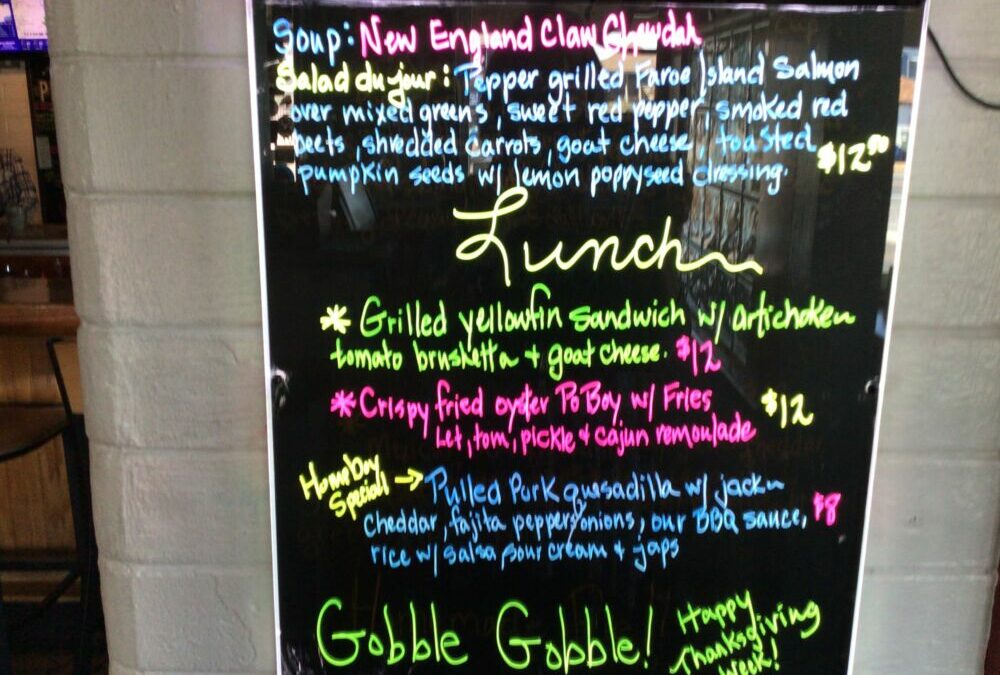 Soup: New England Clam Chowdah
Salad du jour: Pepper grilled Faroe Island Salmon
over mixed greens, sweet red pepper, smoked red
beets, shredded carrots, goat cheese, toasted
pumpkin seeds w/ lemon poppyseed dressing. $12.00
Lunch
* Grilled yellowfin sandwich w/ artichoke
tomato brusketta + goat cheese. $12
* Crispy fried oyster Po Boy w/ Fries $12
Let, tom, pickle + cajun remoulade
Homeboy
Special! → Pulled Pork quesadilla w/ jack
cheddar, fajita peppers/onions, our BBQ sauce, $8
rice w/ salsa, sour cream + japs
Gobble Gobble!
Happy
Thanksgiving
Week!